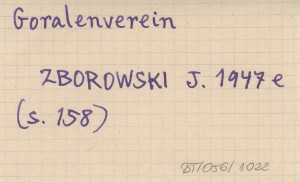 Goralenverein
ZBOROWSKI J. 1947 e
(s. 158)
BT/056/1022